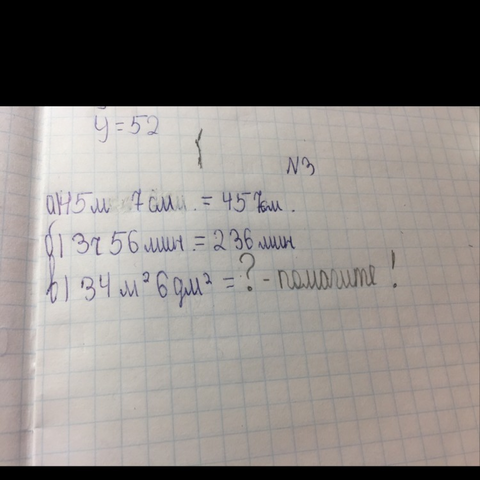 y = 52
N3
а) 45 м 7 см. = 457 см.
б) 3ч 56 мин. = 236 мин
в) 34 м² 6 дм² = ? - помагите!